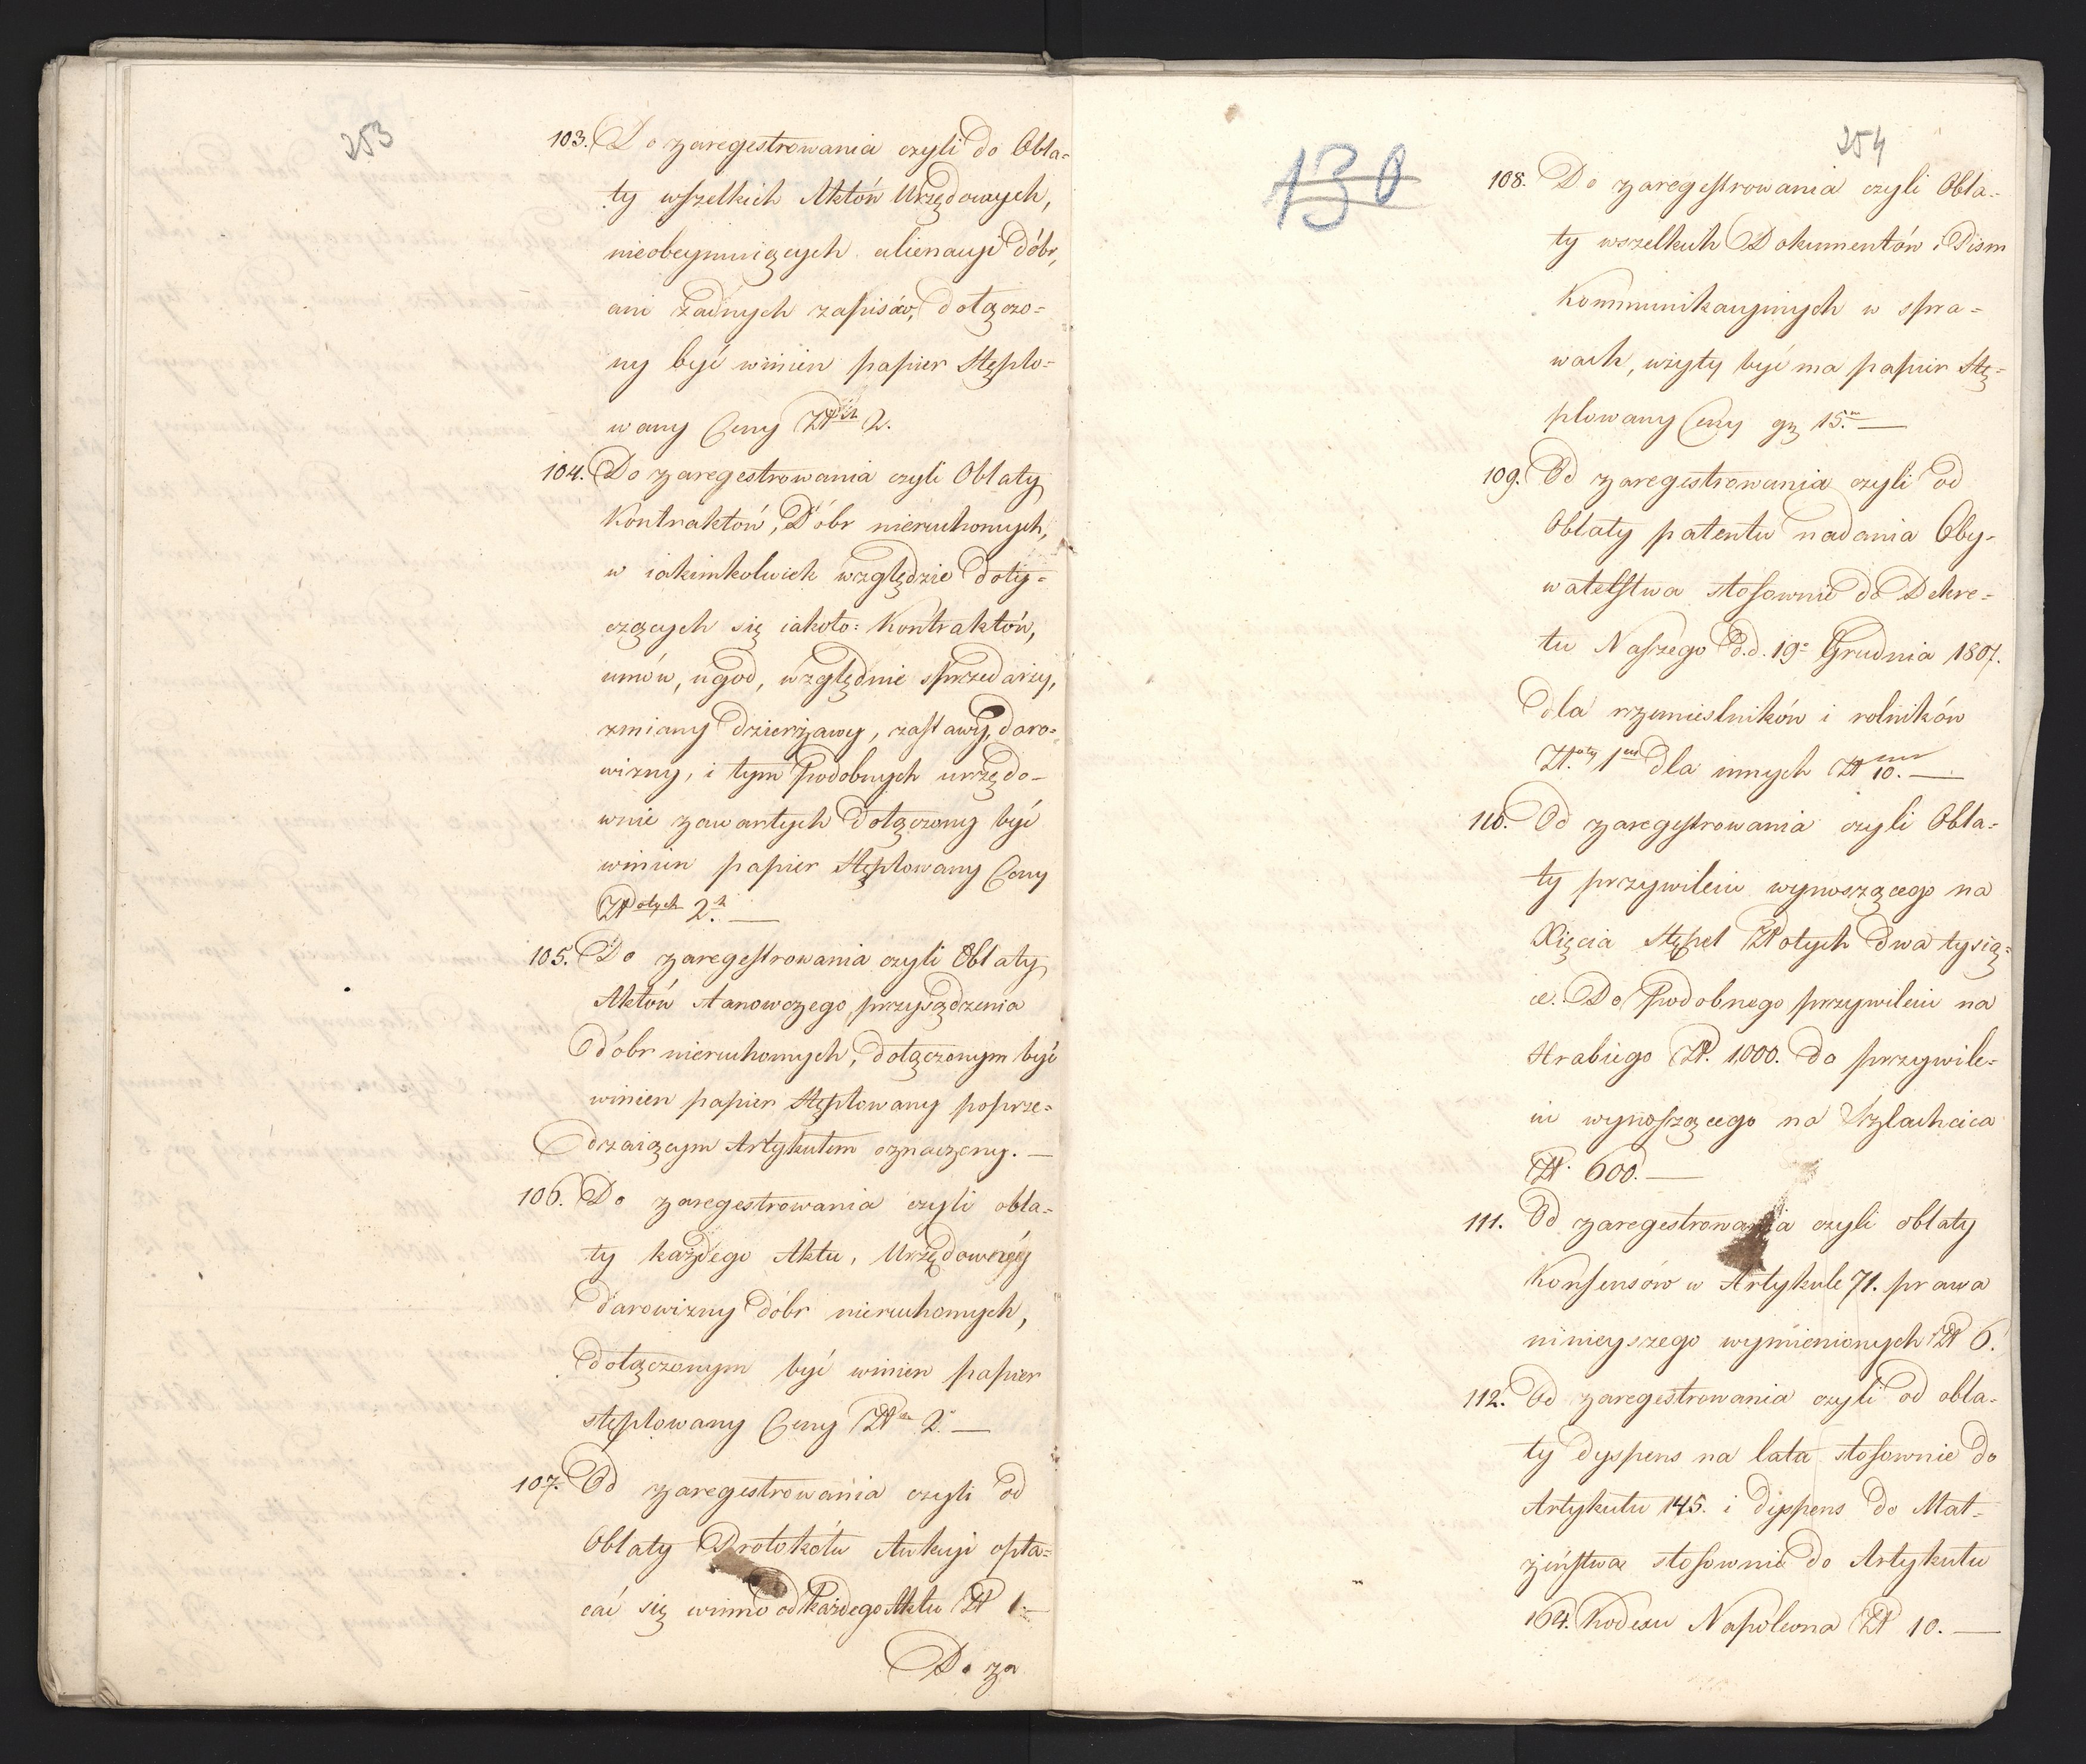 253
103. Do zaregestrowania czyli do Obla=
ty wszelkich Aktów Urzędowych,
nieobeymuiących alienacyi dóbr,
ani żadnych zapisów, dołączo=
ny być winien papier Stęplo=
wany Ceny Złtch 2.
104. Do zaregestrowania czyli Oblaty
Kontraktów, Dóbr nieruchomych,
w iakimkolwiek względzie doty=
czących się iakoto: Kontraktów,
umów, ugod, względnie sprzedarzy,
zmiany dzierżawy, zastawy, daro=
wizny, i tym podobnych urzędo=
wnie zawartych dołączony być
winien papier Stęplowany Ceny
Złotych 2.
105. Do zaregestrowania czyli Oblaty
Aktów stanowczego przysądzenia
dóbr nieruchomych, dołączonym być
winien papier Stęplowany poprze=
dzaiącym Artykułem oznaczony. —
106. Do zaregestrowania czyli obla=
ty każdego Aktu, Urzędowney
darowizny dóbr nieruchomych,
dołączonym być winien papier
stęplowany Ceny Zł 2. —
107. Od zaregestrowania czyli od
Oblaty Protokółu Aukcyi opła=
cać się winno od Każdego Aktu Zł 1. —
Do za
130
254
108. Do zaregestrowania czyli Obla=
ty wszelkich Dokumentów i Pism
Kommunikacyinych w spra=
wach, użyty być ma papier Stę=
plowany Ceny gr 15. —
109. Od zaregestrowania czyli od
Oblaty patentu nadania Oby=
watelstwa stosownie do Dekre=
tu Naszego d.d. 19o Grudnia 1807.
dla rzemieslników i rolników
Złoty 1en dla innych Zł 10. —
110. Od zaregestrowania czyli Obla=
ty przywileiu wynoszącego na
Xięcia Stępel Złotych dwa tysią=
ce. Do podobnego przywileiu na
Hrabiego Zł. 1000. do przywile=
iu wynoszącego na Szlachcica
Zł. 600. —
111. Od zaregestrowania czyli oblaty
Konsensów w Artykule 71. prawa
ninieyszego wymienionych Zł 6.
112. Od zaregestrowania czyli od obla=
ty dyspens na lata stosownie do
Artykułu 145. i dyspens do Mał=
żeństwa stosownie do Artykułu
164. Kodexu Napoleona Zł 10. —